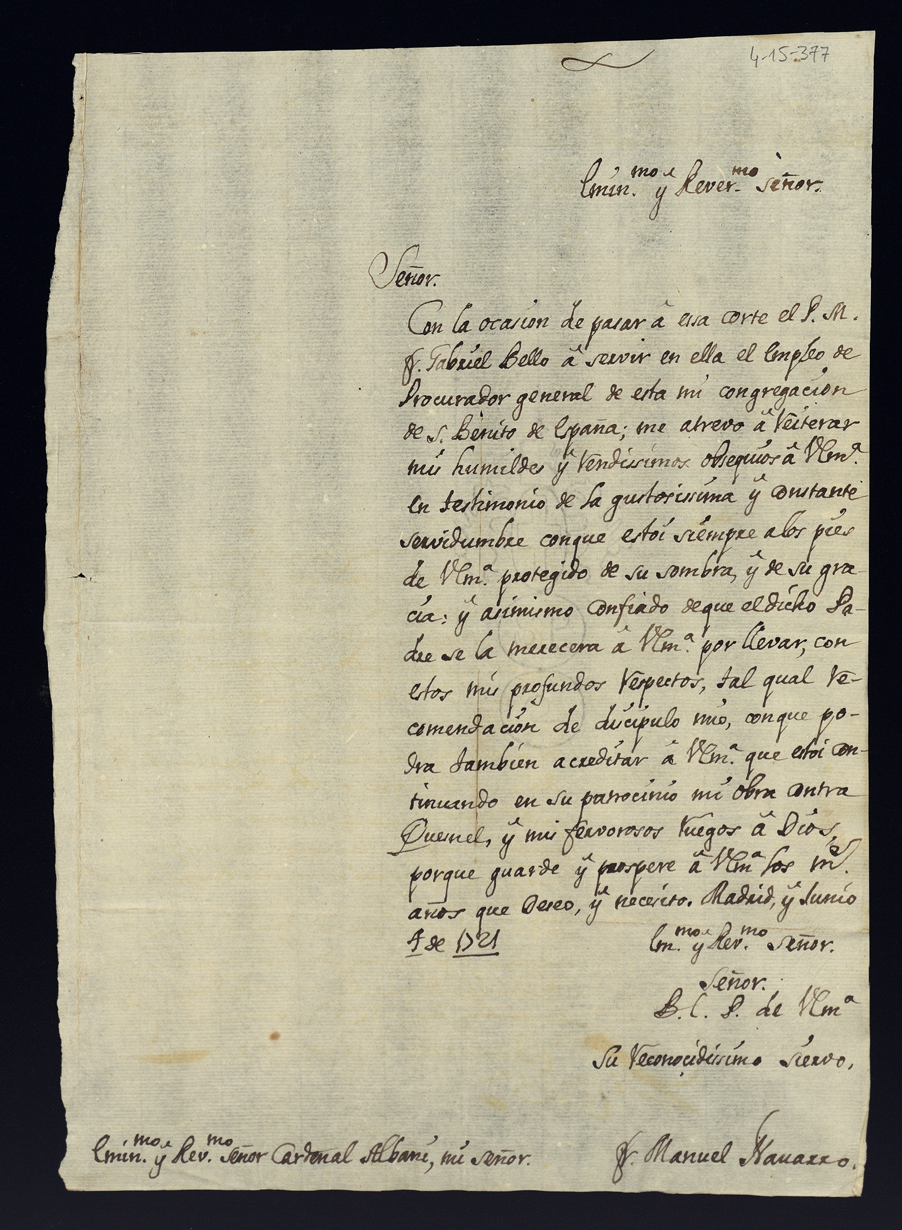 4-15-377
Emin.mo y Rever.mo Señor.
Señor.
Con la ocasion de pasar â essa corte el P. M.
fr. Gabriel Bello â servir en ella el Empleo de
Procurador general de esta mi congregacion
de S. Benito de España; me atrevo â reiterar
mis humildes y rendissimos obsequios â VEm.ª
en testimonio de la gustosissima y constante
servidumbre conque estoi siempre alos pies
de VEm.ª protegido de su sombra, y de su gra-
cia: y asimismo confiado deque el dicho Pa-
dre se la merecera â VEm.ª por llevar, con
estos mis profundos respectos, tal qual re-
comendacion de discipulo mio, conque po-
dra tambien acreditar â VEm.ª que estoi con-
tinuando en su patrocinio mi obra contra
Quesnel, y mis fervorosos ruegos â Dios,
porque guarde y prospere â VEm.ª los m.s
años que Deseo, y necesito. Madrid, y Junio
4 de 1721
Em.mo y Rev.mo Señor.
Señor.
B. L. P. de VEm.ª
Su reconocidissimo siervo,
Emin.mo y Rev.mo Señor Cardenal Albani, mi señor.
fr. Manuel Navarro.